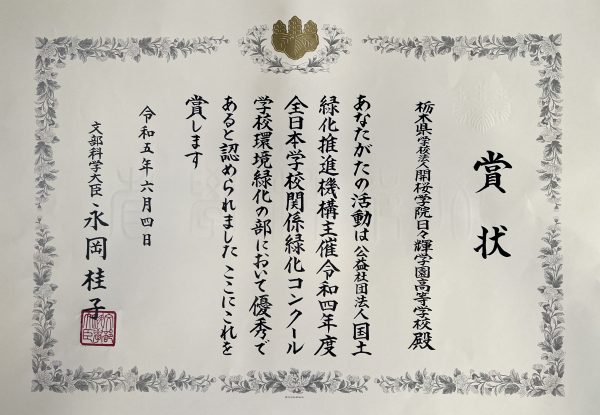 賞状
栃木県学校法人開桜学院日々輝学園高等学校殿
あなたがたの活動は公益社団法人国土
緑化推進機構主催令和四年度
全日本学校関係緑化コンクール
学校環境緑化の部において優秀で
あると認められましたここにこれを
賞します
令和五年六月四日
文部科学大臣 永岡桂子